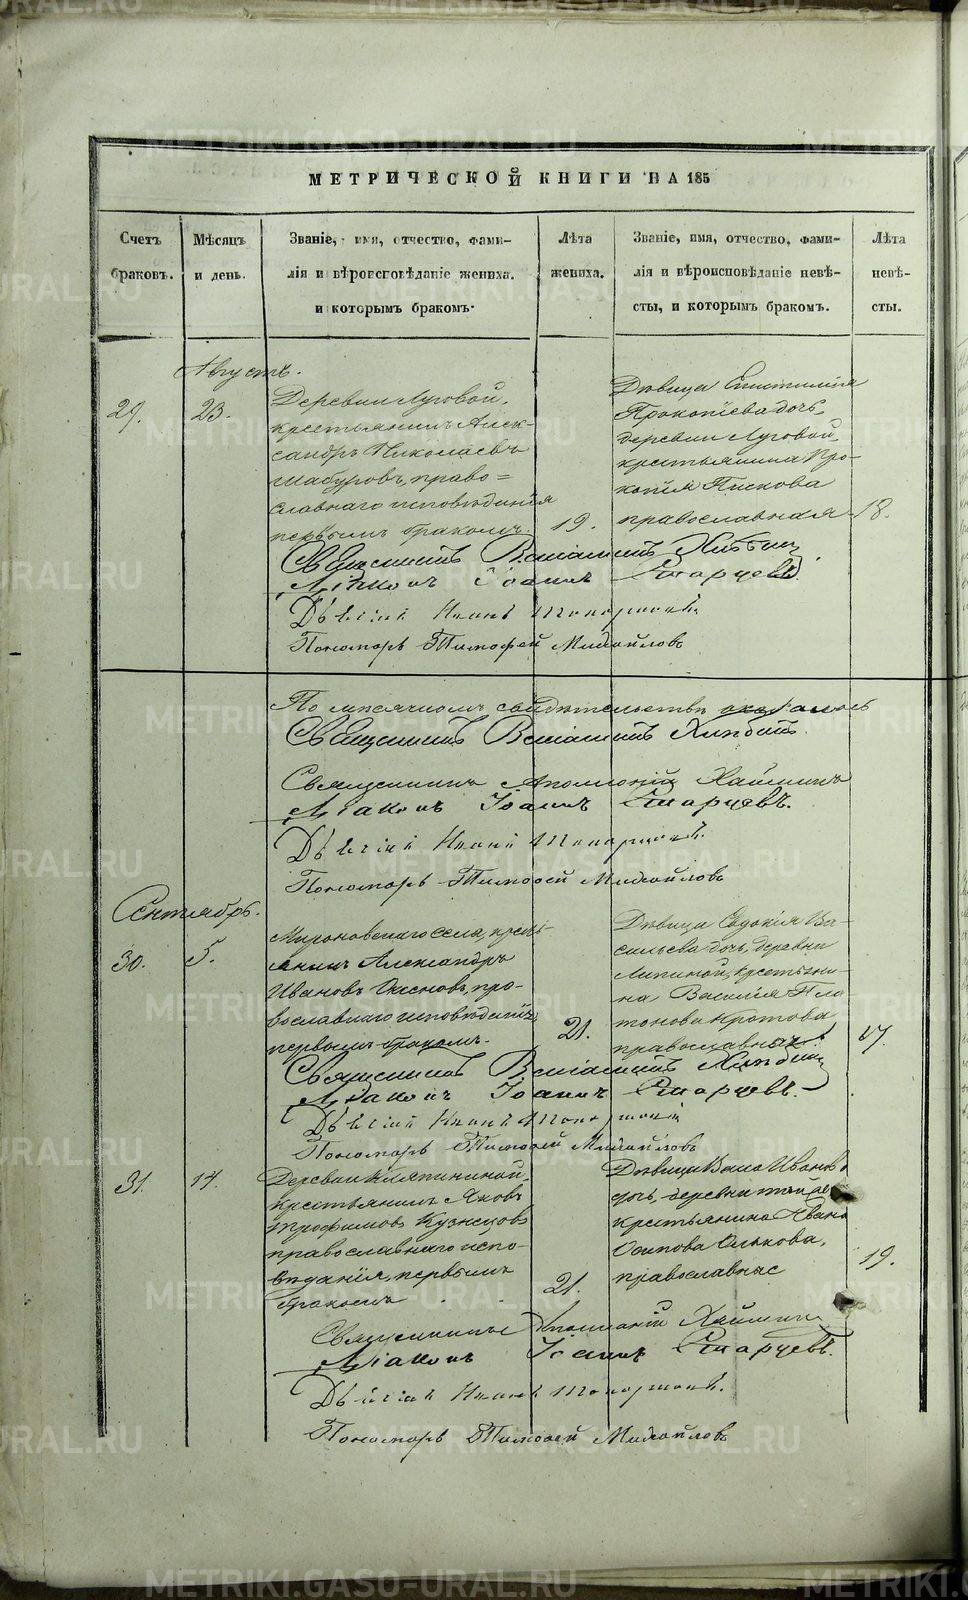 МЕТРИЧЕСКОЙ КНИГИ НА 185
Счетъ браковъ.
Мѣсяцъ и день.
Званіе, имя, отчество, фами-
лія и вѣроисповѣданіе жениха.
и которымъ бракомъ.
Лѣта жениха.
Званіе, имя, отчество, фами-
лія и вѣроисповѣданіе невѣ-
сты, и которымъ бракомъ.
Лѣта невѣ-
сты.
Августъ.
29.
23.
Деревни Луговой,
крестьянинъ Алек-
сандръ Николаевъ
Шабуровъ, право=
славнаго исповѣданія
первымъ бракомъ.
19.
Дѣвица
Прокопіева дочь,
деревни Луговой,
крестьянина Про-
копія Пискова
православная
18.
Священникъ Веніаминъ
Діаконъ Іоаннъ Старцевъ.
Дьячій Иванъ
Пономарь Тимофей Михайловъ
По мѣсячномъ свидѣтельствѣ оказалось
Священникъ Веніаминъ
Священникъ Аполлоній
Діаконъ Іоаннъ Старцевъ.
Дьячій Иванъ
Пономарь Тимофей Михайловъ
Сентябрь.
30.
5.
Мироновскаго села, кресть-
янинъ Александръ
Ивановъ пра-
вославнаго исповѣданія
первымъ бракомъ.
21.
Дѣвица Евдокія Ва-
сильева дочь, деревни
Липиной, крестьяни-
на Василія Пла
тонова Кротова
17.
Священникъ Веніаминъ
Діаконъ Іоаннъ Старцевъ.
Дьячій Иванъ
Пономарь Тимофей Михайловъ
31.
14.
Деревни
крестьянинъ Яковъ
Трофимовъ Кузнецовъ
православнаго испо-
вѣданія, первымъ
бракомъ
21.
Дѣвица Иванова
дочь, деревни той же
крестьянина Ивана
Осипова
православные
19.
Священникъ Аполлоній
Діаконъ Іоаннъ Старцевъ.
Дьячій Иванъ
Пономарь Тимофей Михайловъ
METRIKI.GASO-URAL.RU